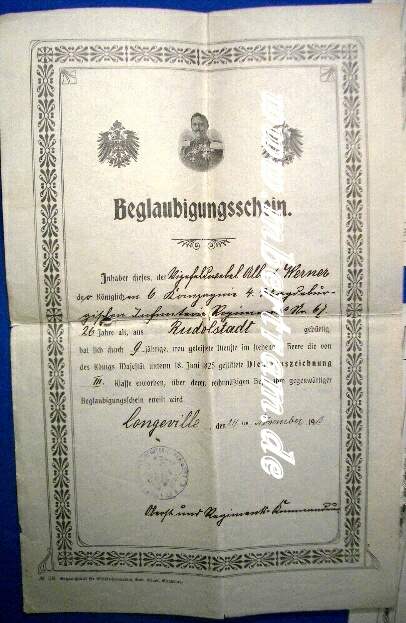 Beglaubigungsschein.
Inhaber dieses, der Vizefeldwebel Alb Werner
der Königlichen 6 Kompagnie 4. Magdebur-
gischen Infanterie Regiments No 67
26 Jahre alt, aus Rudolstadt gebürtig,
hat sich durch 9-jährige, treu geleistete Dienste im stehenden Heere die von
des Königs Majestät unterm 18. Juni 1825 gestiftete Dienstauszeichnung
III. Klasse erworben, über deren rechtmäßigen gegenwärtiger
Beglaubigungsschein erteilt wird.
Longeville, den November
Oberst und Regiments-Kommandeur